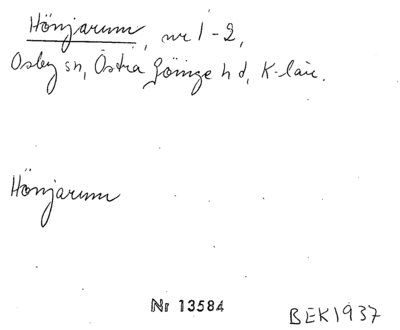 Hönjarum, nr 1-2,
Osby sn, Östra Göinge hd, K-län.
Hönjarum
Nr 13584
BEK1937